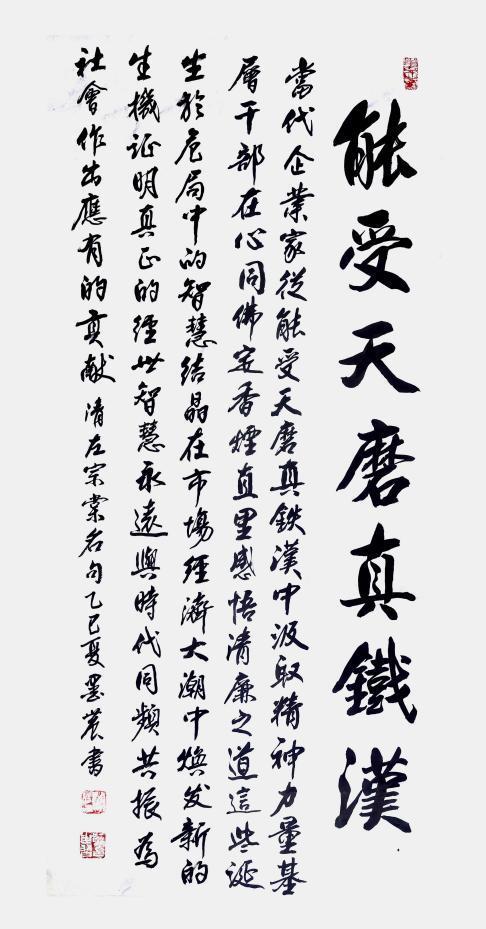 能受天磨真鐵漢
當代企業家從能受天磨真鉄漢中汲取精神力量基
層干部在心同佛定香煙直里感悟清廉之道這些誕
生於危局中的智慧结晶在市場經濟大潮中焕发新的
生機证明真正的經世智慧永遠與時代同频共振為
社會作出應有的貢献清左宗棠名句乙巳夏墨農書